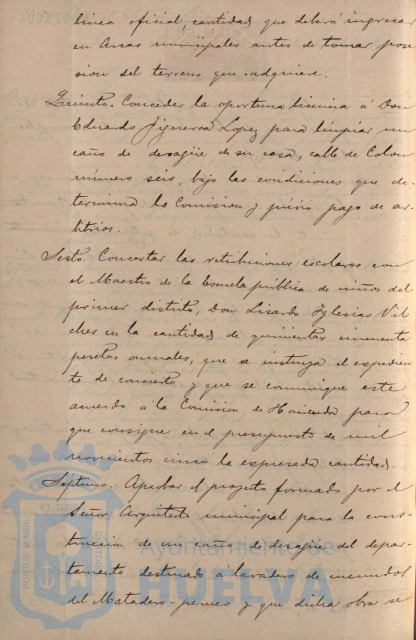 linea oficial, cantidad que deberá ingresar
en Arcas municipales antes de tomar pose
sion del terreno que adquiere.
Quinto. Conceder la oportuna licencia á Don
Eduardo Figueroa Lopez para limpiar un
caño de desagüe de su casa, calle de Colon
número seis, bajo las condiciones que de-
termina la Comision y previo pago de ar-
bitrios.
Sesto. Concertar las retribuciones escolares con
el Maestro de la Escuela publica de niños del
primer distrito, Don Lisardo Yglesias Vil
ches en la cantidad de quinientas cincuenta
pesetas anuales, que se instruya el expedien
te de concierto y que se comunique este
acuerdo á la Comision de Hacienda para
que consigne en el presupuesto de mil
novecientos cinco la expresada cantidad.
Septimo. Aprobar el proyecto formado por el
Señor Arquitecto municipal para la cons-
truccion de un caño de desagüe del depar-
tamento destinado á lavadero de menudos
del Matadero y que dicha obra se
Ayuntamiento de
HUELVA
PORTUS MARIS